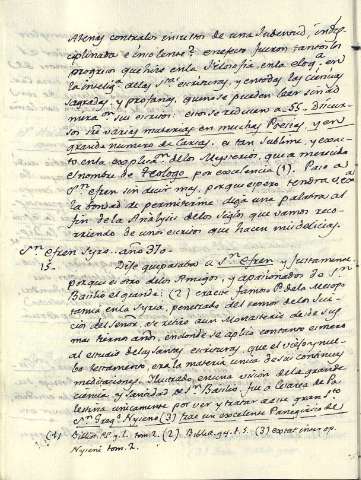 Atenas contra los insultos de una Juventud, indis-
ciplinada è insolente? en efecto fueron tantos los
progresos que hizo en la Filosofia, en la eloq.ª en
la intelig.ª de las S.tas escrituras, y en todas las ciencias
sagradas, y profanas, que no se pueden leer sin ad-
mirac.on sus escritos: estos se reducen a 55 Discur-
sos sre varias materias en muchas Poesias, y en
grande numero de Cartas. es tan sublime, y exac-
to en la explicac.on de los Mysterios, que a merecido
el nombre de Teologo por excelencia (1). Pasa a
S.n Efren sin decir mas, porque espero tendra
la bondad de permitirme diga una palabra al
fin de la Analysis de los Siglos que vamos reco-
rriendo de unos escritos que hacen mis delicias.
S.n Efren Syro.. año 370..
15.. Dije guiparaba a S.n Efren y Justamente
porque es otro de los Amigos, y apasionados de S.n
Basilio el grande: (2) este famoso P. de la Mesopo-
tamia en la Syria, penetrado del temor de los Jui-
cios del Señor, se retiro a un Monasterio desde sus
mas tiernos años, en donde se aplico con tanto esmero
al estudio de las santas escrituras, que el viejo y nue-
bo testamento era la materia unica de sus continuas
meditaciones. Ilustrado en una vision de la grande
ciencia y santidad de S.n Basilio, fue a Cesarea de Pa-
lestina unicamente por ver y tratar a este gran S.to
S.n Greg.o Nyseno (3) trae un excelente Panegirico de
(1) Biblio. PP. g. l. tom. 2. (2) Biblio. g. y. l. 5. (3) extat inter op.
Nyseni tom. 2.